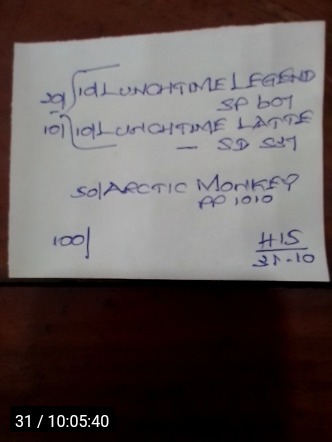 20/ 10/LUNCHTIME LEGEND
SP 601
10/ 10/LUNCHTIME LATTE
— SD 537
50/ARCTIC MONKEY
PP 1010
100/
HIS
31-10
31 / 10:05:40